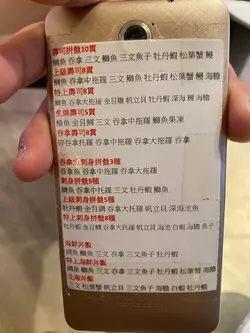 壽司拼盤10貫
鯛魚 吞拿 三文 鰤魚 三文魚子 牡丹蝦 松葉蟹 鰻
上級壽司8貫
鯛魚 吞拿中拖羅 三文 鰤魚 牡丹蝦 松葉蟹 鰻 海膽
特上壽司8貫
鰤魚 吞拿大拖羅 金目鯛 帆立貝 牡丹蝦 深海 鰻 海膽
炙燒壽司5貫
鯨魚 金目鯛 三文 吞拿中拖羅 鰤魚
吞拿壽司8貫
吞拿大拖羅 吞拿中拖羅 吞拿
吞拿魚刺身拼盤3種
吞拿魚 吞拿中拖羅 吞拿大拖羅
刺身拼盤5種
鯛魚 吞拿中拖羅 三文 牡丹蝦 鰤魚
上級刺身拼盤5種
牡丹蝦 金目鯛 吞拿大拖羅 帆立貝 深海池魚
特上刺身拼盤8種
牡丹蝦 金目鯛 吞拿大拖羅 帆立貝 三文魚 白蝦 海膽 魚子
海鮮丼製
鯛魚 鰤魚 三文 吞拿 三文魚子 牡丹蝦
特上海鮮丼製
鯛魚 鰤魚 三文 吞拿 三文魚子 牡丹蝦 松葉蟹 海膽
北海丼製
三文 松葉蟹 帆立貝 三文魚子 海膽 白蝦 牡丹蝦